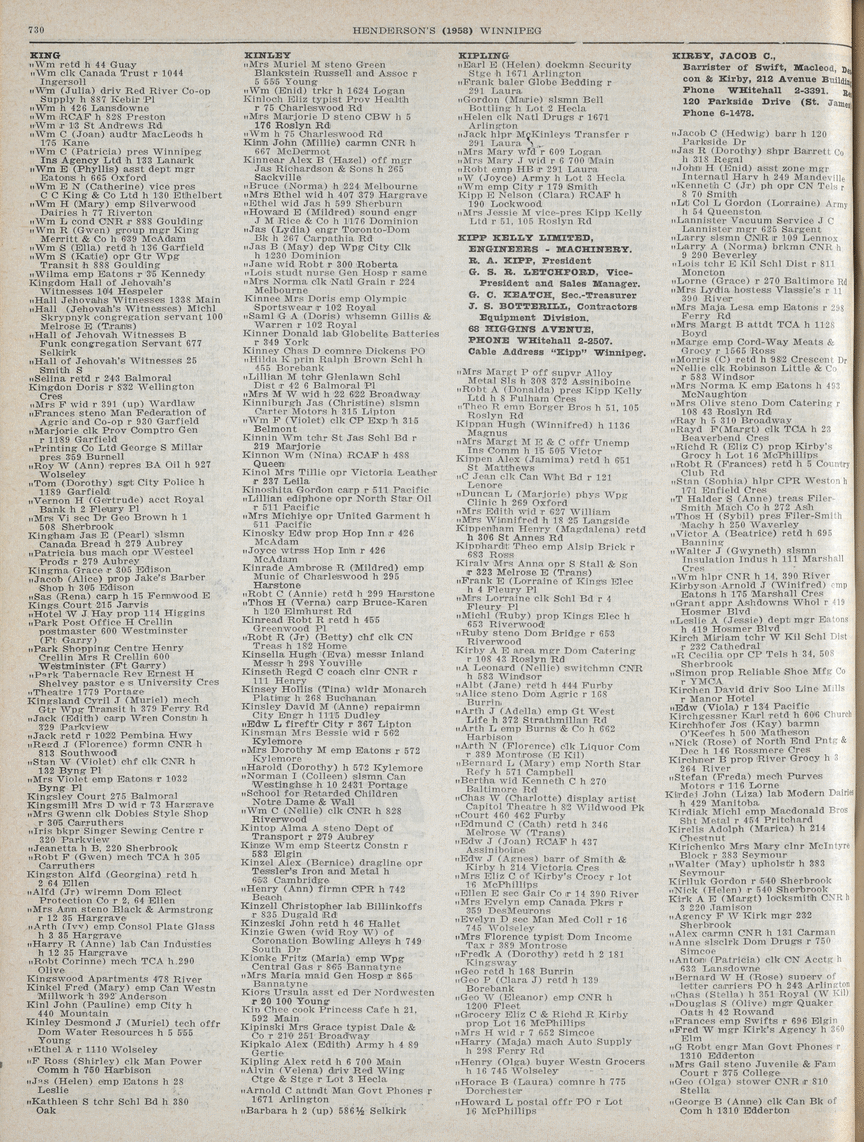 730
HENDERSON'S (1958) WINNIPEG
KING
„Wm retd h 44 Guay
„Wm clk Canada Trust r 1044
Ingersoll
„Wm (Julia) driv Red River Co-op
Supply h 887 Kebir Pl
„Wm h 426 Lansdowne
„Wm RCAF h 828 Preston
„Wm r 13 St Andrews Rd
„Wm C (Joan) audtr MacLeods h
175 Kane
„Wm C (Patricia) pres Winnipeg
Ins Agency Ltd h 133 Lanark
„Wm E (Phyllis) asst dept mgr
Eatons h 665 Oxford
„Wm E N (Catherine) vice pres
C C King & Co Ltd h 130 Ethelbert
„Wm H (Mary) emp Silverwood
Dairies h 77 Riverton
„Wm L cond CNR r 888 Goulding
„Wm R (Gwen) group mgr King
Merritt & Co h 639 McAdam
„Wm S (Ella) retd h 136 Garfield
„Wm S (Katie) opr Gtr Wpg
Transit h 888 Goulding
„Wilma emp Eatons r 35 Kennedy
Kingdom Hall of Jehovah's
Witnesses 104 Hespeler
„Hall Jehovahs Witnesses 1338 Main
„Hall (Jehovah's Witnesses) Michl
Skrypnyk congregation servant 100
Melrose E (Trans)
„Hall of Jehovah's Witnesses B
Funk congregation Servant 677
Selkirk
„Hall of Jehovah's Witnesses 25
Smith S
„Selina retd r 243 Balmoral
Kingdon Doris r 832 Wellington
Cres
„Mrs F wid r 391 (up) Wardlaw
„Frances steno Man Federation of
Agric and Co-op r 930 Garfield
„Marjorie clk Prov Comptro Gen
r 1189 Garfield
„Printing Co Ltd George S Millar
pres 359 Burnell
„Roy W (Ann) repres BA Oil h 927
Wolseley
„Tom (Dorothy) sgt City Police h
1189 Garfield
„Vernon H (Gertrude) acct Royal
Bank h 2 Fleury Pl
„Mrs Vi sec Dr Geo Brown h 1
508 Sherbrook
Kingham Jas E (Pearl) slsmn
Canada Bread h 279 Aubrey
„Patricia bus mach opr Westeel
Prods r 279 Aubrey
Kingma Grace r 305 Edison
„Jacob (Alice) prop Jake's Barber
Shop h 305 Edison
„Sas (Rena) carp h 15 Fernwood E
Kings Court 215 Jarvis
„Hotel W J Hay prop 114 Higgins
„Park Post Office H Crellin
postmaster 600 Westminster
(Ft Garry)
„Park Shopping Centre Henry
Crellin Mrs R Crellin 600
Westminster (Ft Garry)
„Park Tabernacle Rev Ernest H
Shelvey pastor e s University Cres
„Theatre 1779 Portage
Kingsland Cyril J (Muriel) mech
Gtr Wpg Transit h 379 Ferry Rd
„Jack (Edith) carp Wren Constn h
329 Parkview
„Jack retd r 1022 Pembina Hwy
„Regd J (Florence) formn CNR h
813 Southwood
„Stan W (Violet) chf clk CNR h
132 Byng Pl
„Mrs Violet emp Eatons r 1032
Byng Pl
Kingsley Court 275 Balmoral
Kingsmill Mrs D wid r 73 Hargrave
„Mrs Gwenn clk Dobies Style Shop
r 305 Carruthers
„Iris bkpr Singer Sewing Centre r
320 Parkview
„Jeanetta h B, 220 Sherbrook
„Robt F (Gwen) mech TCA h 305
Carruthers
Kingston Alfd (Georgina) retd h
2 64 Ellen
„Alfd (Jr) wiremn Dom Elect
Protection Co r 2, 64 Ellen
„Mrs Ann steno Black & Armstrong
r 12 35 Hargrave
„Arth (Ivy) emp Consol Plate Glass
h 3 35 Hargrave
„Harry R (Anne) lab Can Industies
h 12 35 Hargrave
„Robt Corinne) mech TCA h.290
Olive
Kingswood Apartments 478 River
Kinkel Fred (Mary) emp Can Westn
Millwork h 392 Anderson
Kinl John (Pauline) emp City h
440 Mountain
Kinley Desmond J (Muriel) tech offr
Dom Water Resources h 5 555
Young
„Ethel A r 1110 Wolseley
„F Ross (Shirley) clk Man Power
Comm h 750 Harbison
„Jas (Helen) emp Eatons h 28
Leslie
„Kathleen S tchr Schl Bd h 380
Oak
KINLEY
„Mrs Muriel M steno Green
Blankstein Russell and Assoc r
5 555 Young
„Wm (Enid) trkr h 1624 Logan
Kinloch Eliz typist Prov Health
r 75 Charleswood Rd
„Mrs Marjorie D steno CBW h 5
176 Roslyn Rd
„Wm h 75 Charleswood Rd
Kinn John (Millie) carmn CNR h
667 McDermot
Kinnear Alex B (Hazel) off mgr
Jas Richardson & Sons h 265
Sackville
„Bruce (Norma) h 224 Melbourne
„Mrs Ethel wid h 407 379 Hargrave
„Ethel wid Jas h 599 Sherburn
„Howard E (Mildred) sound engr
J M Rice & Co h 1176 Dominion
„Jas (Lydia) engr Toronto-Dom
Bk h 267 Carpathia Rd
„Jas B (May) dep Wpg City Clk
h 1230 Dominion
„Jane wid Robt r 300 Roberta
„Lois studt nurse Gen Hosp r same
„Mrs Norma clk Natl Grain r 224
Melbourne
Kinnee Mrs Doris emp Olympic
Sportswear r 102 Royal
„Saml G A (Doris) whsemn Gillis &
Warren r 102 Royal
Kinner Donald lab Globelite Batteries
r 349 York
Kinney Chas D comnre Dickens PO
„Hilda K prin Ralph Brown Schl h
455 Borebank
„Lillian M tchr Glenlawn Schl
Dist r 42 6 Balmoral Pl
„Mrs M W wid h 22 622 Broadway
Kinniburgh Jas (Christine) slsmn
Carter Motors h 315 Lipton
„Wm F (Violet) clk CP Exp h 315
Belmont
Kinnin Wm tchr St Jas Schl Bd r
219 Marjorie
Kinnon Wm (Nina) RCAF h 488
Queen
Kinol Mrs Tillie opr Victoria Leather
r 237 Leila
Kinoshita Gordon carp r 511 Pacific
„Lillian ediphone opr North Star Oil
r 511 Pacific
„Mrs Michiye opr United Garment h
511 Pacific
Kinosky Edw prop Hop Inn r 426
McAdam
„Joyce wtrss Hop Inn r 426
McAdam
Kinrade Ambrose R (Mildred) emp
Munic of Charleswood h 295
Harstone
„Robt C (Annie) retd h 299 Harstone
„Thos H (Verna) carp Bruce-Karen
h 120 Elmhurst Rd
Kinread Robt R retd h 455
Greenwood Pl
„Robt R (Jr) (Betty) chf clk CN
Treas h 182 Home
Kinsella Hugh (Eva) messr Inland
Messr h 298 Youville
Kinseth Regd C coach clnr CNR r
111 Henry
Kinsey Hollis (Tina) wldr Monarch
Plating h 268 Buchanan
Kinsley David M (Anne) repairmn
City Engr h 1115 Dudley
„Edw L fireftr City r 367 Lipton
Kinsman Mrs Bessie wid r 562
Kylemore
„Mrs Dorothy M emp Eatons r 572
Kylemore
„Harold (Dorothy) h 572 Kylemore
„Norman I (Colleen) slsmn Can
Westinghse h 10 2431 Portage
„School for Retarded Children
Notre Dame & Wall
„Wm C (Nellie) clk CNR h 828
Riverwood
Kintop Alma A steno Dept of
Transport r 279 Aubrey
Kinze Wm emp Steertz Constn r
583 Elgin
Kinzel Alex (Bernice) dragline opr
Tessler's Iron and Metal h
653 Cambridge
„Henry (Ann) firmn CPR h 742
Beach
Kinzell Christopher lab Billinkoffs
r 835 Dugald Rd
Kinzeski John retd h 46 Hallet
Kinzie Gwen (wid Roy W) of
Coronation Bowling Alleys h 749
South Dr
Kionke Fritz (Maria) emp Wpg
Central Gas r 865 Bannatyne
„Mrs Maria maid Gen Hosp r 865
Bannatyne
Kiors Ursula asst ed Der Nordwesten
r 20 100 Young
Kip Chee cook Princess Cafe h 21,
592 Main
Kipinski Mrs Grace typist Dale &
Co r 210 251 Broadway
Kipkalo Alex (Edith) Army h 4 89
Gertie
Kipling Alex retd h 6 700 Main
„Alvin (Velena) driv Red Wing
Ctge & Stge r Lot 3 Hecla
„Arnold C attndt Man Govt Phones r
1671 Arlington
„Barbara h 2 (up) 586½ Selkirk
KIPLING
„Earl E (Helen) dockmn Security
Stge h 1671 Arlington
„Frank baler Globe Bedding r
291 Laura
„Gordon (Marie) slsmn Bell
Bottling h Lot 2 Hecla
„Helen clk Natl Drugs r 1671
Arlington
„Jack hlpr McKinleys Transfer r
291 Laura
„Mrs Mary wid r 609 Logan
„Mrs Mary J wid r 6 700 Main
„Robt emp HB r 291 Laura
„W (Joyce) Army h Lot 3 Hecla
„Wm emp City r 179 Smith
Kipp E Nelson (Clara) RCAF h
190 Lockwood
„Mrs Jessie M vice-pres Kipp Kelly
Ltd r 51, 105 Roslyn Rd
KIPP KELLY LIMITED,
ENGINEERS - MACHINERY.
R. A. KIPP, President
G. S. R. LETCHFORD, Vice-
President and Sales Manager.
G. C. KEATCH, Sec.-Treasurer
J. S. BOTTERILL, Contractors
Equipment Division.
68 HIGGINS AVENUE,
PHONE WHitehall 2-2507.
Cable Address "Kipp" Winnipeg.
„Mrs Margt P off supvr Alloy
Metal Sls h 308 372 Assiniboine
„Robt A (Donalda) pres Kipp Kelly
Ltd h 8 Fulham Cres
„Theo R emp Borger Bros h 51, 105
Roslyn Rd
Kippan Hugh (Winnifred) h 1136
Magnus
„Mrs Margt M E & C offr Unemp
Ins Comm h 15 505 Victor
Kippen Alex (Jamima) retd h 651
St Matthews
„C Jean clk Can Wht Bd r 121
Lenore
„Duncan L (Marjorie) phys Wpg
Clinic h 269 Oxford
„Mrs Edith wid r 627 William
„Mrs Winnifred h 18 25 Langside
Kippenhem Henry (Magdalena) retd
h 306 St Annes Rd
Kipphardt Theo emp Alsip Brick r
683 Ross
Kiraly Mrs Anna opr S Stall & Son
r 323 Melrose E (Trans)
„Frank E (Lorraine of Kings Elec
h 4 Fleury Pl
„Mrs Lorraine clk Schl Bd r 4
Fleury Pl
„Michl (Ruby) prop Kings Elec h
653 Riverwood
„Ruby steno Dom Bridge r 653
Riverwood
Kirby A E area mgr Dom Catering
r 108 43 Roslyn Rd
„A Leonard (Nellie) switchmn CNR
h 583 Windsor
„Albt (Jane) retd h 444 Furby
„Alice steno Dom Agric r 168
Burrin
„Arth J (Adella) emp Gt West
Life h 372 Strathmillan Rd
„Arth L emp Burns & Co h 662
Harbison
„Arth N (Florence) clk Liquor Com
r 389 Montrose (E Kil)
„Bernard L (Mary) emp North Star
Refy h 571 Campbell
„Bertha wid Kenneth C h 270
Baltimore Rd
„Chas W (Charlotte) display artist
Capitol Theatre h 82 Wildwood Pk
„Court 460 462 Furby
„Edmund C (Cath) retd h 346
Melrose W (Trans)
„Edw J (Joan) RCAF h 437
Assiniboine
„Edw J (Agnes) barr of Smith &
Kirby h 214 Victoria Cres
„Mrs Eliz C of Kirby's Crocy r lot
16 McPhillips
„Ellen E sec Gair Co r 14 390 River
„Mrs Evelyn emp Canada Pkrs r
359 DesMeurons
„Evelyn D sec Man Med Coll r 16
745 Wolseley
„Mrs Florence typist Dom Income
Tax r 389 Montrose
„Fredk A (Dorothy) retd h 2 181
Kingsway
„Geo retd h 168 Burrin
„Geo P (Clara J) retd h 139
Borebank
„Geo W (Eleanor) emp CNR h
1200 Fleet
„Grocery Eliz C & Richd R Kirby
prop Lot 16 McPhillips
„Mrs H wid r 7 652 Simcoe
„Harry (Maja) mach Auto Supply
h 298 Ferry Rd
„Henry (Olga) buyer Westn Grocers
h 16 745 Wolseley
„Horace B (Laura) comnre h 775
Dorchester
„Howard L postal offr PO r Lot
16 McPhillips
KIRBY, JACOB C.,
Barrister of Swift, Macleod,
con & Kirby, 212 Avenue Building
Phone WHitehall 2-3391.
120 Parkside Drive (St. James
Phone 6-1478.
„Jacob C (Hedwig) barr h 120
Parkside Dr
„Jas R (Dorothy) shpr Barrett Co
h 318 Regal
„John H (Enid) asst zone mgr
Internatl Harv h 249 Mandeville
„Kenneth C (Jr) ph opr CN Tels r
8 70 Smith
„Lt Col L Gordon (Lorraine) Army
h 54 Queenston
„Lannister Vacuum Service J C
Lannister mgr 625 Sargent
„Larry slsmn CNR r 109 Lennox
„Larry A (Norma) brkmn CNR h
9 290 Beverley
„Lois tchr E Kil Schl Dist r 811
Moncton
„Lorne (Grace) r 270 Baltimore Rd
„Mrs Lydia hostess Vlassie's r 11
390 River
„Mrs Maja Lesa emp Eatons r 298
Ferry Rd
„Mrs Margt B attdt TCA h 1128
Boyd
„Marge emp Cord-Way Meats &
Grocy r 1565 Ross
„Morris (C) retd h 982 Crescent Dr
„Nellie clk Robinson Little & Co
r 583 Windsor
„Mrs Norma K emp Eatons h 493
McNaughton
„Mrs Olive steno Dom Catering r
108 43 Roslyn Rd
„Ray h 5 310 Broadway
„Rayd F(Margt) clk TCA h 23
Beaverbend Cres
„Richd R (Eliz C) prop Kirby's
Grocy h Lot 16 McPhillips
„Robt R (Frances) retd h 5 Country
Club Rd
„Stan (Sophia) hlpr CPR Weston h
171 Enfield Cres
„T Halder S (Anne) treas Filer-
Smith Mach Co h 272 Ash
„Thos H (Sybil) pres Filer-Smith
Machy h 250 Waverley
„Victor A (Beatrice) retd h 695
Banning
„Walter J (Gwyneth) slsmn
Insulation Indus h 111 Marshall
Cres
„Wm hlpr CNR h 14, 390 River
Kirbyson Arnold J (Winifred) emp
Eatons h 175 Marshall Cres
„Grant appr Ashdowns Whol r 419
Hosmer Blvd
„Leslie A (Jessie) dept mgr Eatons
h 419 Hosmer Blvd
Kirch Miriam tchr W Kil Schl Dist
r 232 Cathedral
„R Cecilia opr CP Tels h 34, 508
Sherbrook
„Simon prop Reliable Shoe Mfg Co
r YMCA
Kirchen David driv Soo Line Mills
r Manor Hotel
„Edw (Viola) r 134 Pacific
Kirchgessner Karl retd h 606 Church
Kirchhofer Jos (Kay) barmn
O'Keefes h 500 Matheson
„Nick (Rose) of North End Pntg &
Dec h 146 Rossmere Cres
Kirchner B prop River Grocy h 3
264 River
„Stefan (Freda) mech Purves
Motors r 116 Lorne
Kirdei John (Liza) lab Modern Dairies
h 429 Manitoba
Kirdiak Michl emp Macdonald Bros
Sht Metal r 454 Pritchard
Kirelis Adolph (Marica) h 214
Chestnut
Kirichenko Mrs Mary clnr McIntyre
Block r 383 Seymour
„Walter (May) upholstr h 383
Seymour
Kiriluk Gordon r 540 Sherbrook
„Nick (Helen) r 540 Sherbrook
Kirk A E (Margt) locksmith CNR h
3 220 Jamison
„Agency F W Kirk mgr 232
Sherbrook
„Alex carmn CNR h 131 Carman
„Anne slsclrk Dom Drugs r 750
Simcoe
„Anton (Patricia) clk CN Acctg h
633 Lansdowne
„Bernard W H (Rose) superv of
letter carriers PO h 243 Arlington
„Chas (Stella) h 351 Royal (W Kil)
„Douglas S (Olive) mgr Quaker
Oats h 42 Rowand
„Frances emp Swifts r 696 Elgin
„Fred W mgr Kirk's Agency h 360
Elm
„G Robt engr Man Govt Phones r
1310 Edderton
„Mrs Gail steno Juvenile & Fam
Court r 375 College
„Geo (Olga) stower CNR r 810
Stella
„George B (Anne) clk Can Bk of
Com h 1310 Edderton